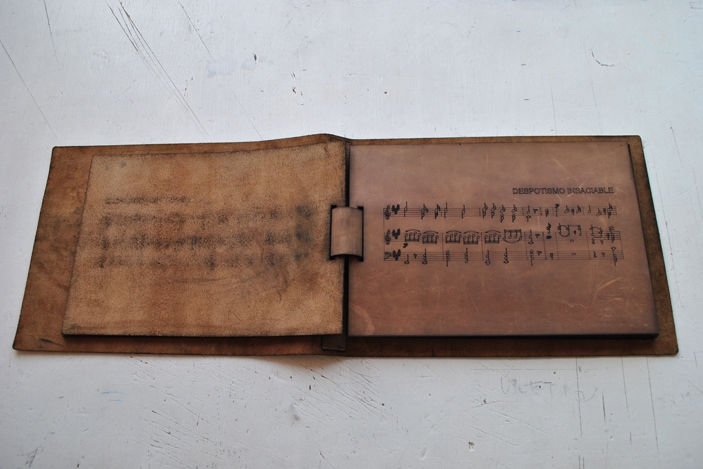 DESPOTISMO INSACIABLE